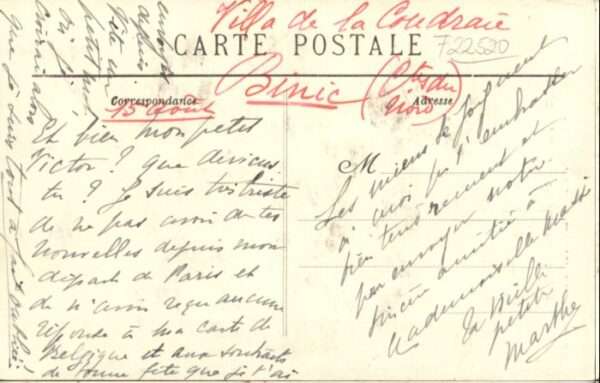 Villa de la Coudraie
CARTE POSTALE
722520
Binic (Ctes du
Nord)
Correspondance
Adresse
15 août
Et bien mon petit
Victor ? Que deviens
tu ? Je suis très triste
de ne pas avoir de tes
nouvelles depuis mon
départ de Paris et
de n'avoir reçu aucune
réponse à ma carte de
Belgique et aux souhaits
de bonne fête que je t'ai
envoyés
depuis
petit
que je suis tout à fait oublié !
M
Les miens se joignent
à moi pr t'embrasser
bien tendrement et
pr envoyer notre
sincère amitié à
Mademoiselle
ta vieille
petite
Marthe